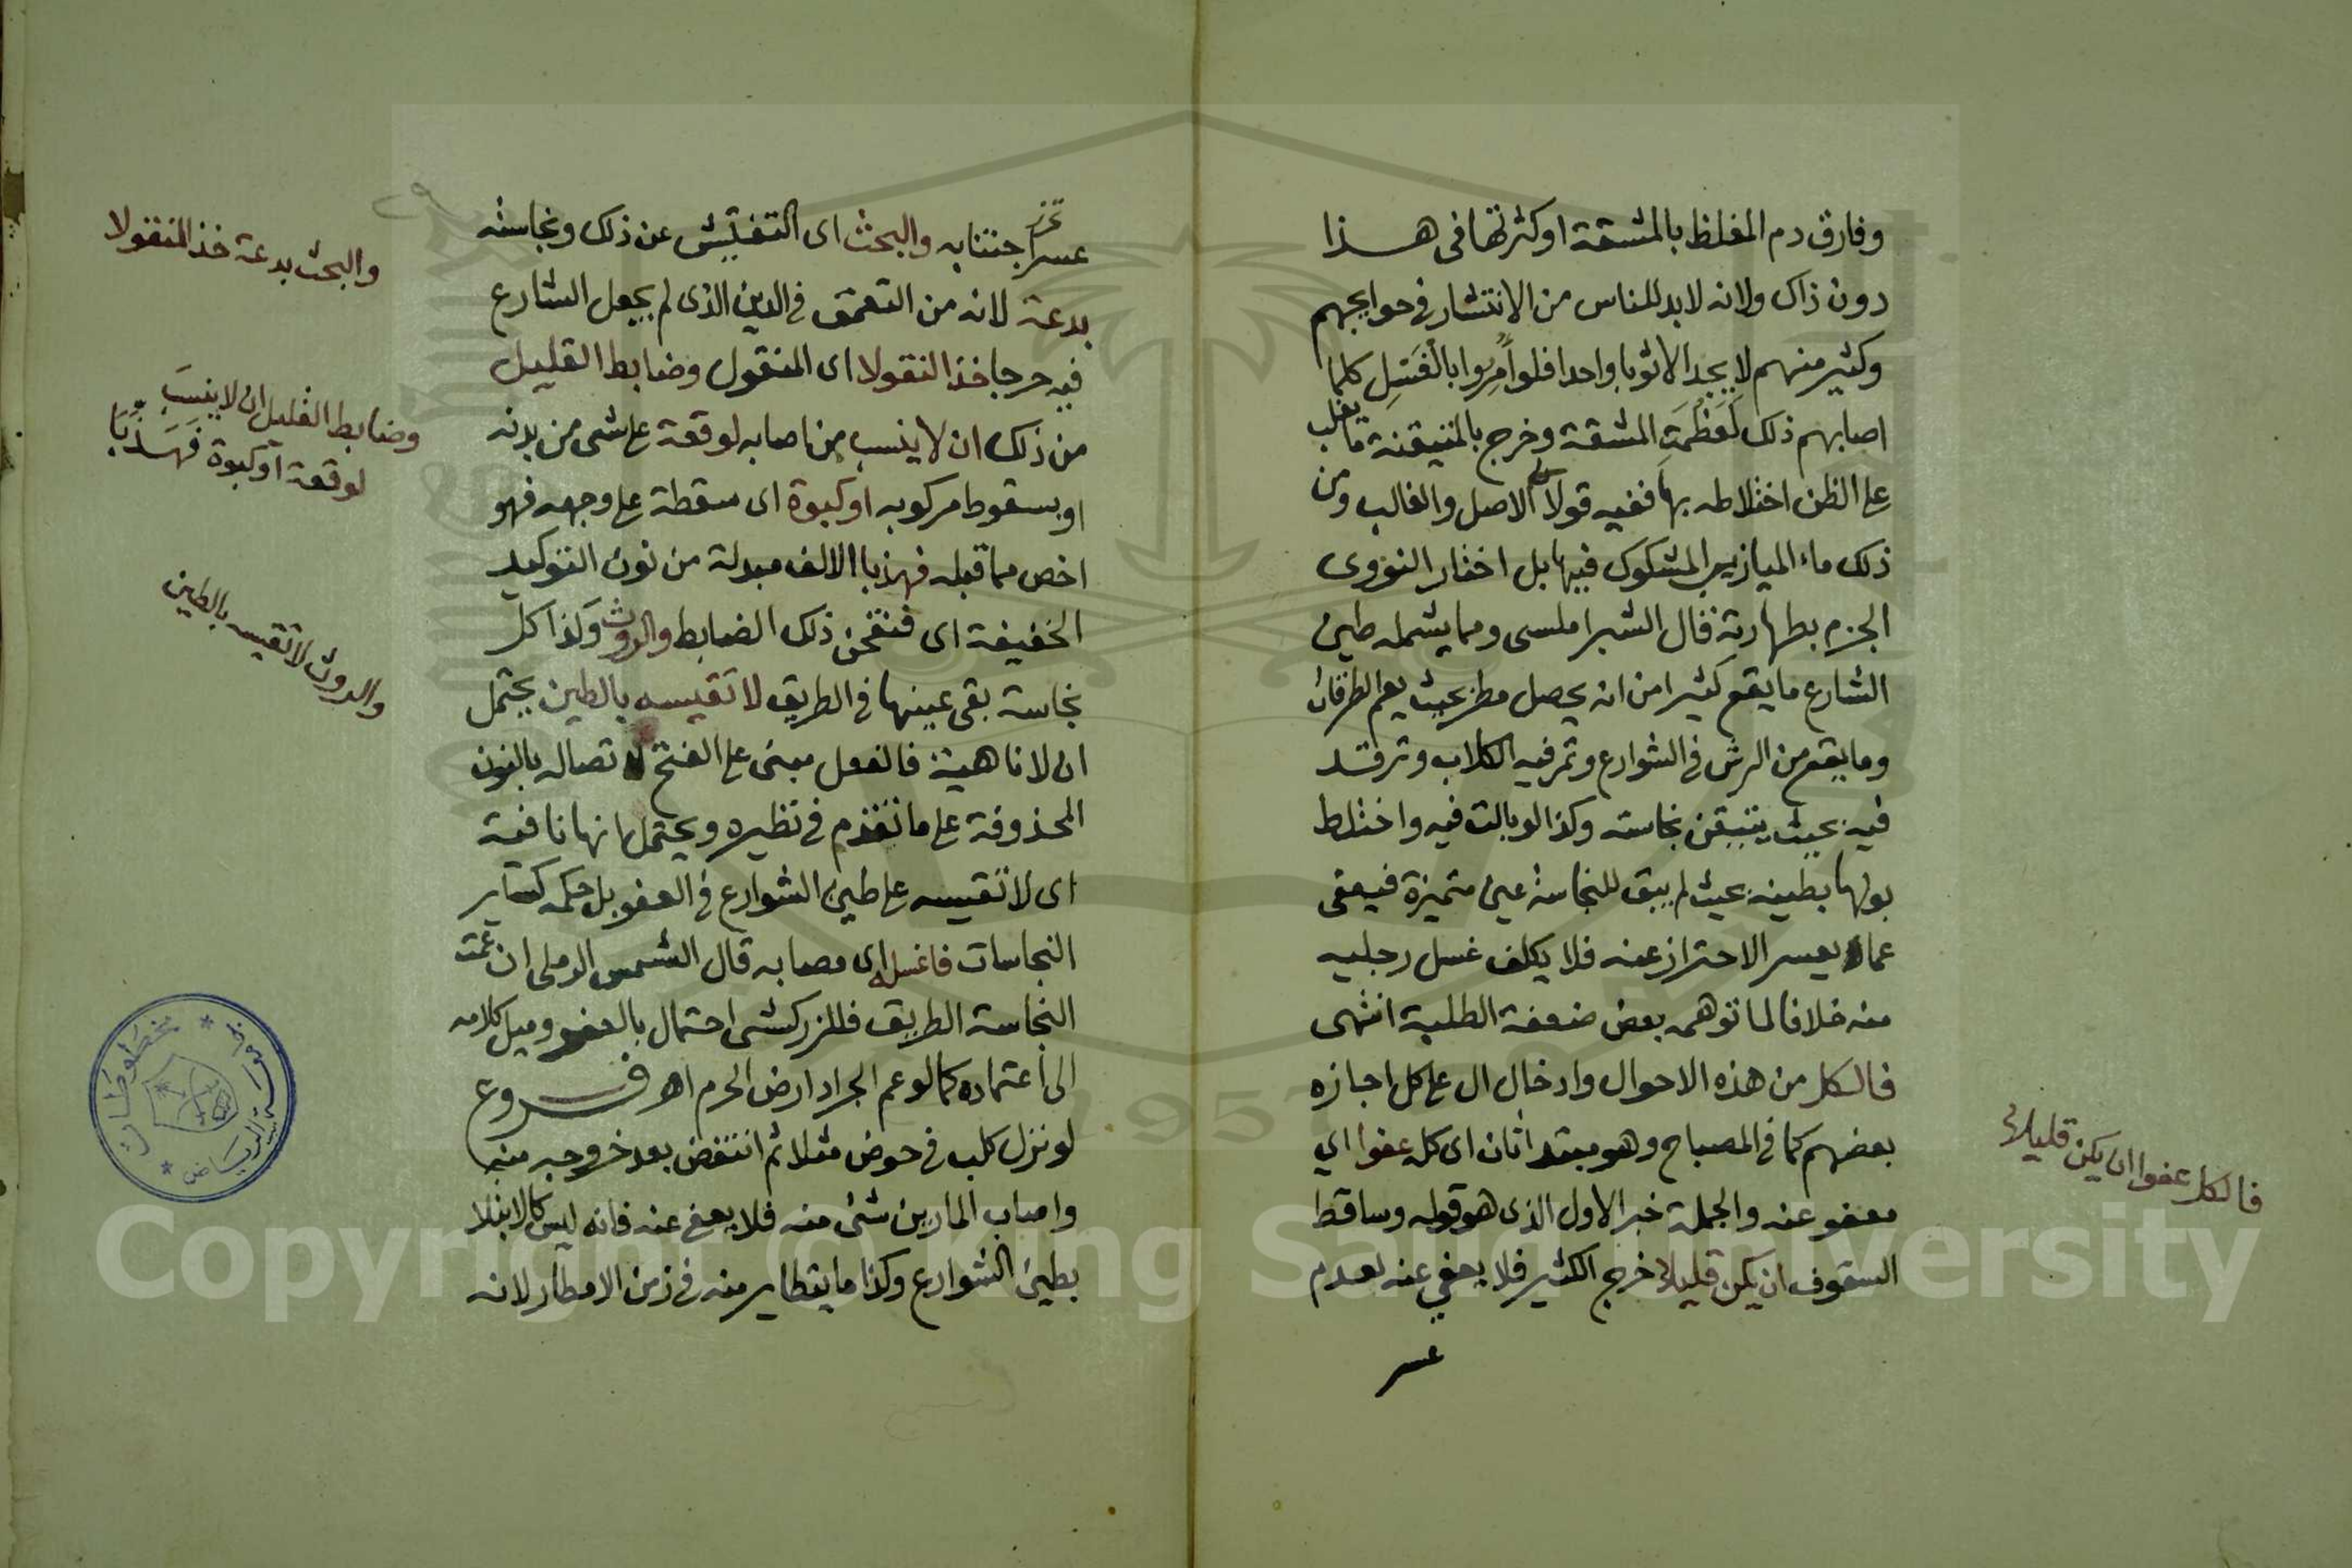 وفارق دم المغلظ بالمشقة او كثرتها في هذا
دون ذاك ولانه لا بد للناس من الانتشار في حوايجهم
وكثير منهم لا يجد الا ثوبا واحدا فلو أُمِروا بالغَسل كلما
اصابهم ذلك لَعَظُمَتِ المشقة وخرج بالمتيقنة ما يغلب
على الظن اختلاطه بها ففيه قولا الاصل والغالب ومن
ذلك ماء الميازيب المشكوك فيها بل اختار النووى
الجزم بطهارته قال الشبراملسى ومما يشمله طين
الشارع ما يقع كثيرا من انه يحصل مطر بحيث يعم الطرقات
وما يقع من الرش في الشوارع وتمر فيه الكلاب وترقد
فيه بحيث يتيقن نجاسته وكذا لو بالت فيه واختلط
بولها بطينه بحيث لم يبق للنجاسة عين متميزة فيعفى
عما يعسر الاحتراز عنه فلا يكلف غسل رجليه
منه خلافا لما توهمه بعض ضعفة الطلبة انتهى
فالكل من هذه الاحوال وادخال ال على كل اجازه
بعضهم كما في المصباح وهو مبتدا ثان اى كله عفوا اي
معفو عنه والجملة خبر الاول الذى هو قوله وساقط
السقوف ان يكن قليلا خرج الكثير فلا يعفي عنه لعدم
عسر
فالكل عفوا ان يكن قليلا
عسر تحز اجتنابه والبحث اى التفتيش عن ذلك ونجاسته
بدعة لانه من التعمق في الدين الذى لم يجعل الشارع
فيه حرجا خذ النقولا اى المنقول وضابط القليل
من ذلك ان لا ينسب من اصابه لوقعة على شى من بدنه
او بسقوط مركوبه او كبوة اى سقطة على وجهه فهو
اخص مما قبله فهذبا الالف مبدلة من نون التوكيد
الخفيفة اى فنقحن ذلك الضابط والروث وكذا كل
نجاسة بقى عينها في الطريق لا تقيسه بالطين يحتمل
ان لا ناهية فالفعل مبنى على الفتح لاتصاله بالنون
المحذوفة على ما تقدم في نظيره ويحتمل انها نافية
اى لا تقيسه على طين الشوارع في العفو بل حكمه كساير
النجاسات فاغسله اى مصابه قال الشمس الرملى ان عمت
النجاسة الطريق فللزركشى احتمال بالعفو وميل كلامه
الى اعتماده كما لو عم الجراد ارض الحرم اهـ فروع
لو نزل كلب في حوض مثلا ثم انتفض بعد خروجه منه
واصاب المارين شئ منه فلا يعفى عنه فانه ليس كالابتلا
بطين الشوارع وكذا ما يتطاير منه في زمن الامطار لانه
والبحث بدعة خذ المنقولا
وضابط القليل ان لا ينسَبَ
لوقعة او كبوة فَهَذِّبَا
والروث لا تقيسه بالطين
Copyright © King Saud University
1957